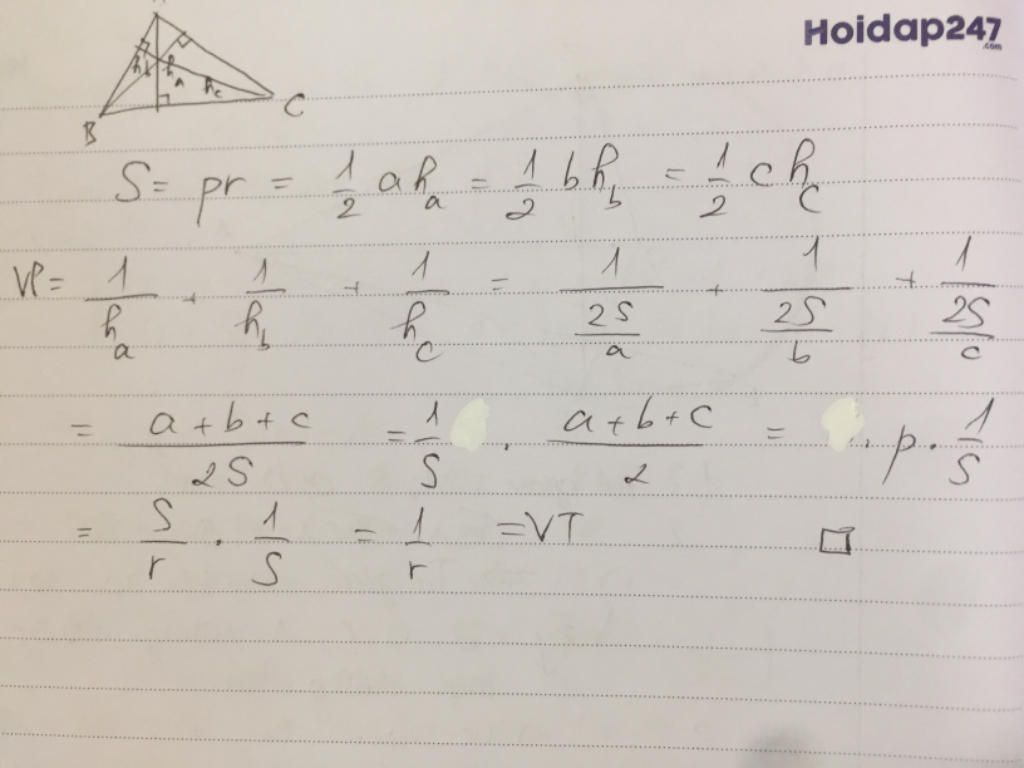 Hoidap247
.com
h_b h_a h_c
B C
S = pr = 1/2 a h_a = 1/2 b h_b = 1/2 c h_c
VP = 1/h_a + 1/h_b + 1/h_c = 1/(2S/a) + 1/(2S/b) + 1/(2S/c)
= (a+b+c)/2S = 1/S . (a+b+c)/2 = . p . 1/S
= S/r . 1/S = 1/r = VT □